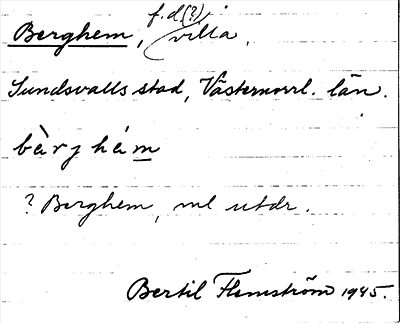 Berghem, f.d.(?) villa,
Sundsvalls stad, Västernorrl. län.
bàrjhém
? Berghem, ml utdr.
Bertil Flemström 1945.